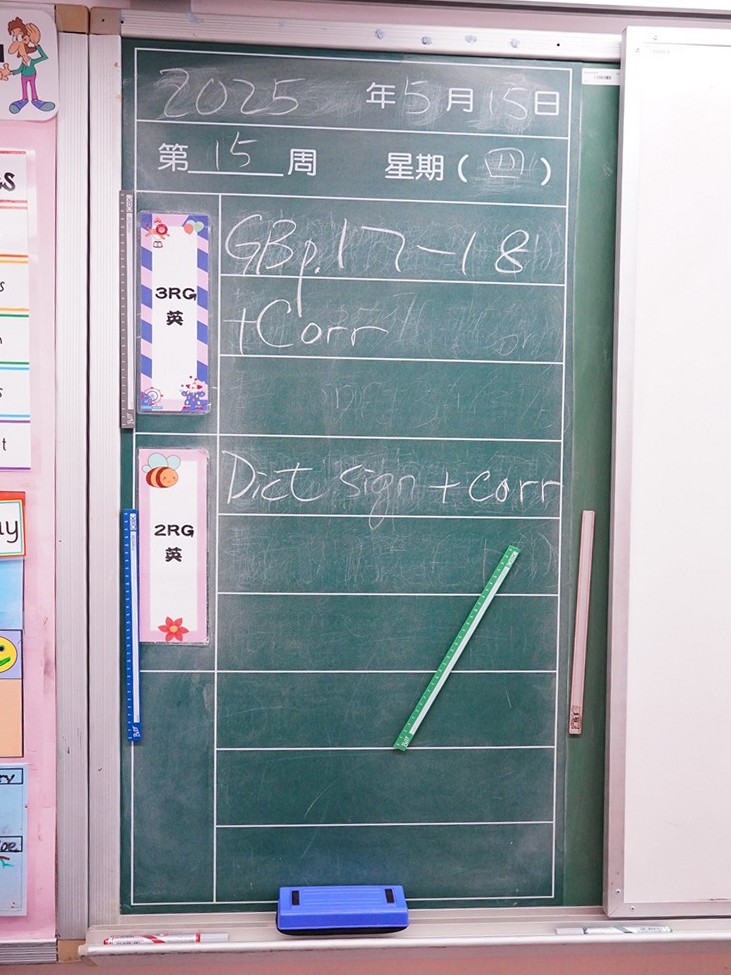 2025 年 5 月 15 日
第 15 周 星期 ( 四 )
3RG
英
GB p.17-18
+Corr
2RG
英
Dict sign + corr